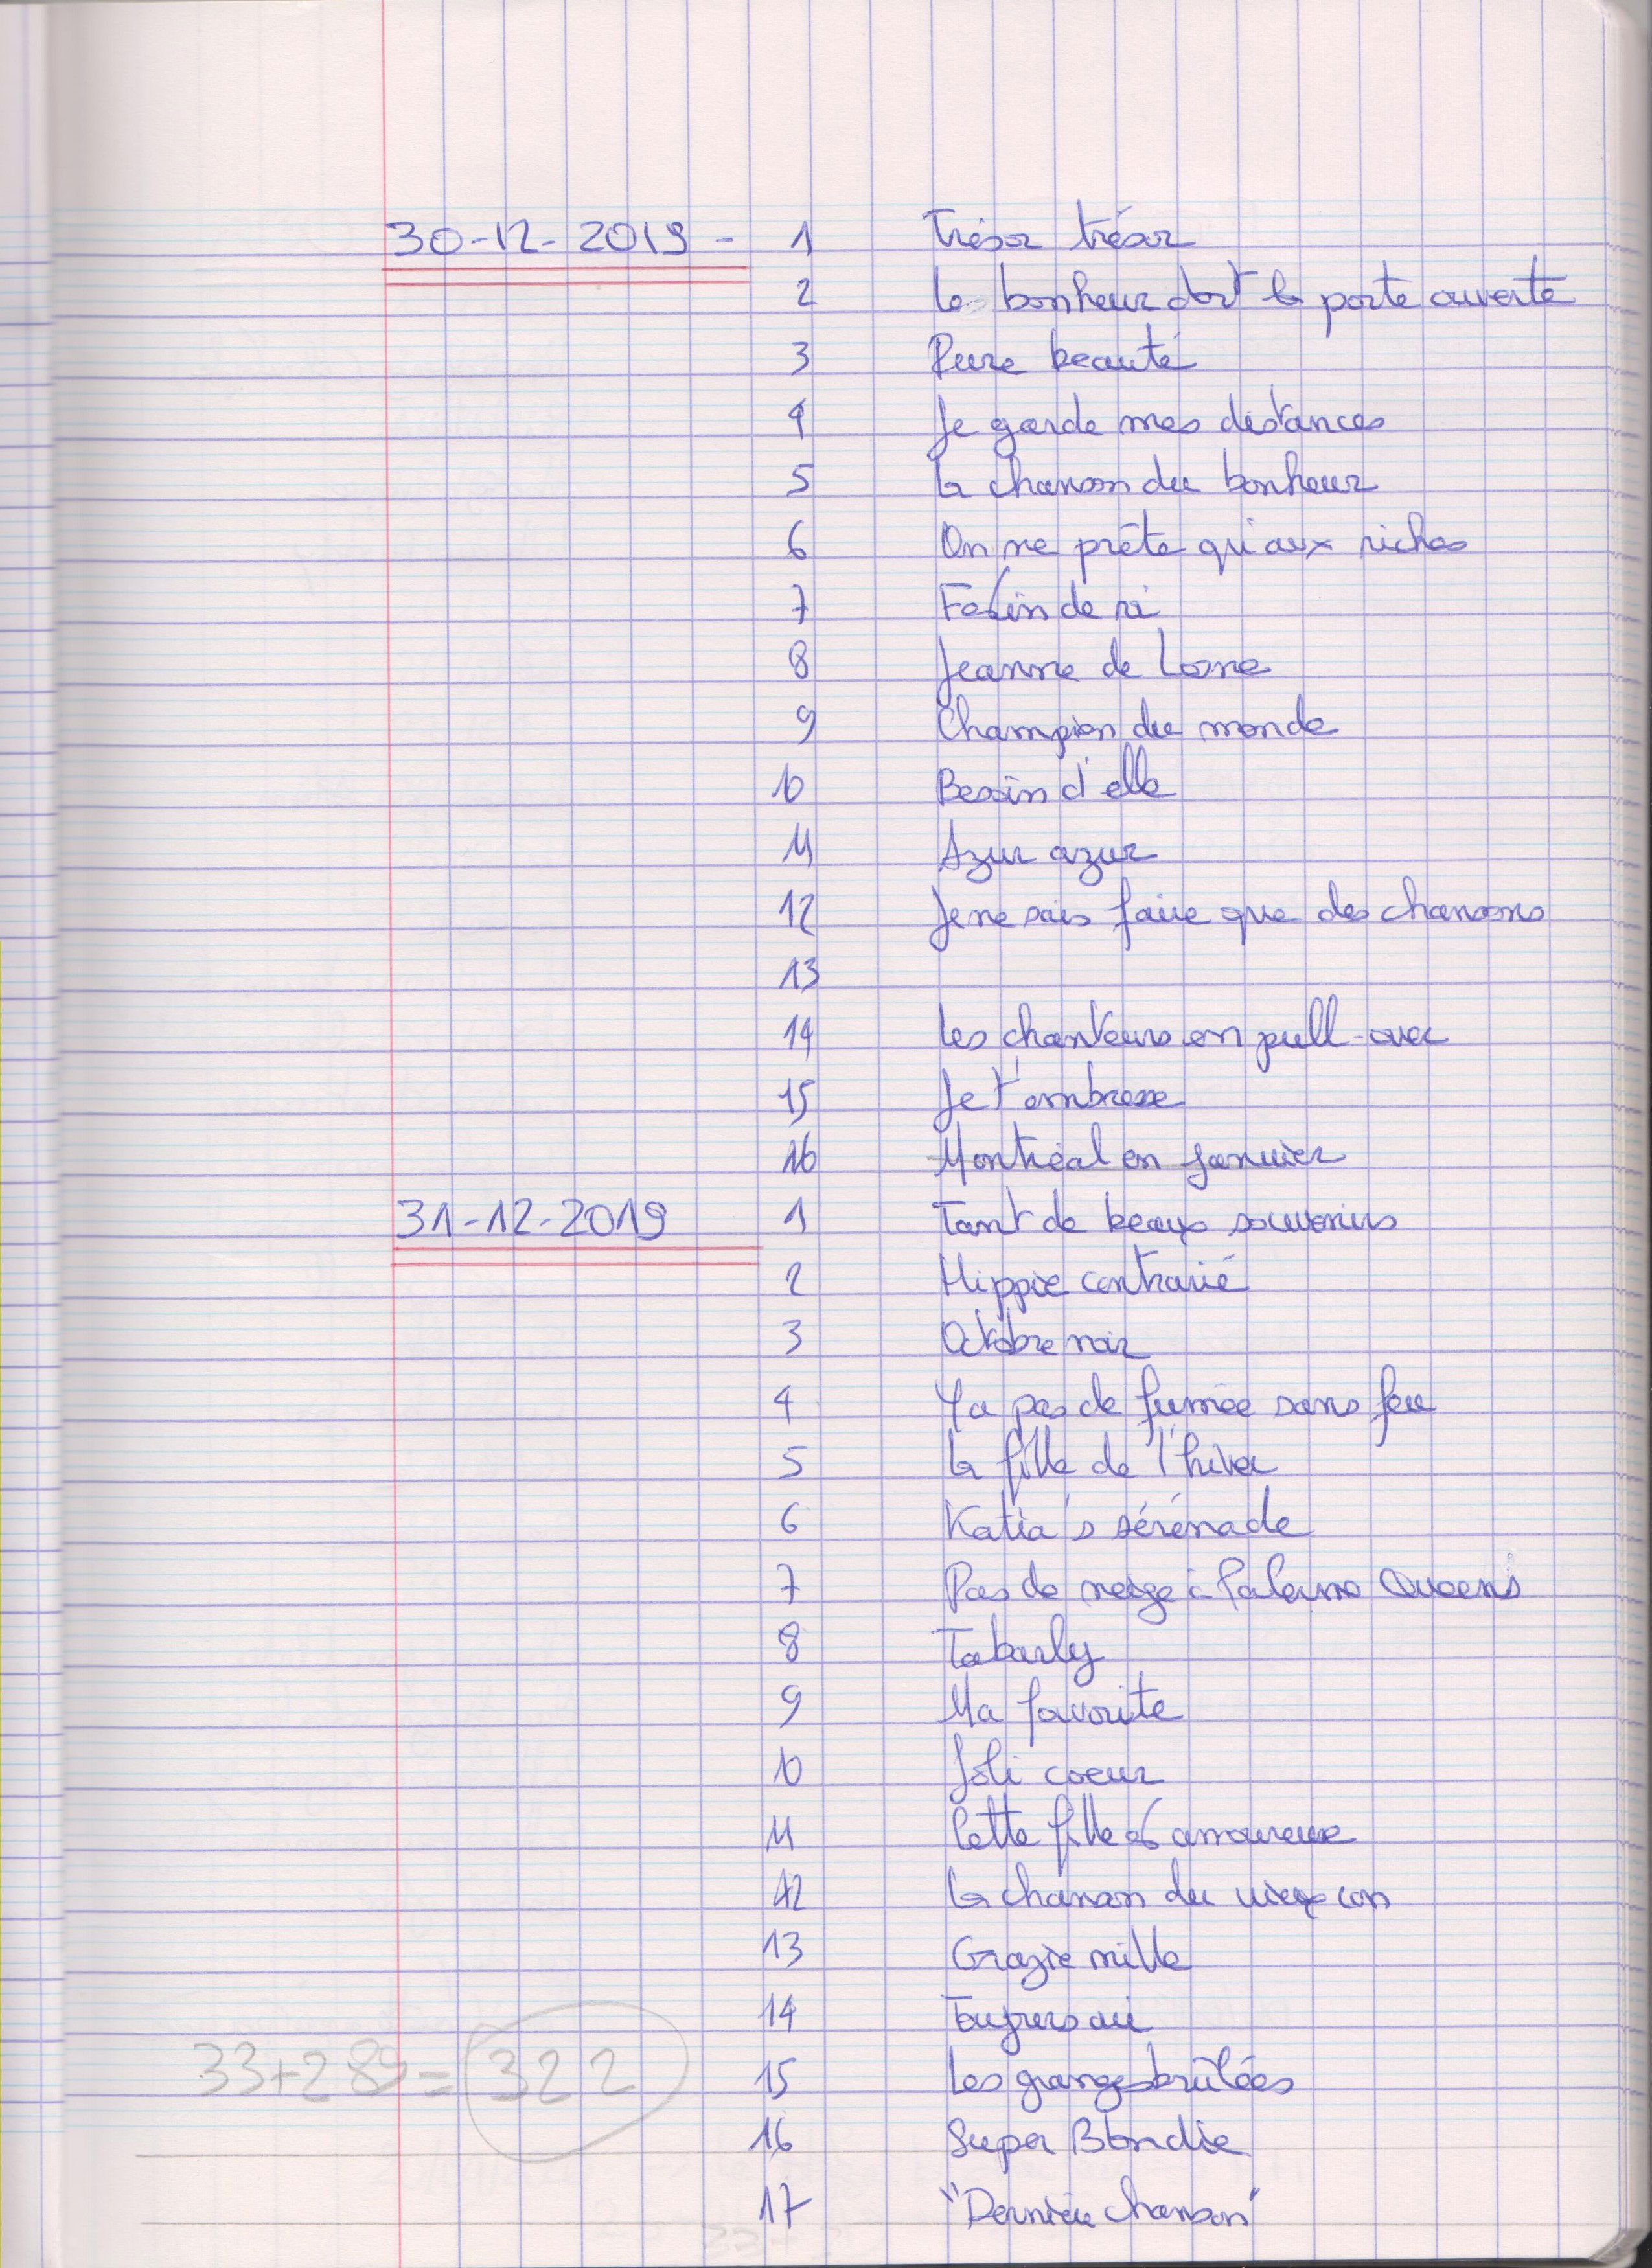 30-12-2019 - 1 Trésor trésor
2 Le bonheur dort la porte ouverte
3 Pure beauté
4 Je garde mes distances
5 La chanson du bonheur
6 On ne prête qu'aux riches
7 Festin de
8 Jeanne de
9 Champion du monde
10 Besoin d'elle
11 Azur azur
12 Je ne sais faire que des chansons
13
14 Les chanteurs en pull-over
15 Je t'embrasse
16 Montréal en janvier
31-12-2019 1 Tant de beaux souvenirs
2 Hippie contrarié
3 Octobre noir
4 Ya pas de fumée sans feu
5 La fille de l'hiver
6 Katia's sérénade
7 Pas de neige à Palermo Queens
8 Tabarly
9 Ma favorite
10 Joli coeur
11 Cette fille est amoureuse
12 La chanson du vieux con
13 Grazie mille
14 Toujours
15 Les granges brûlées
33+289= 322
16 Super Blondie
17 "Dernière chanson"